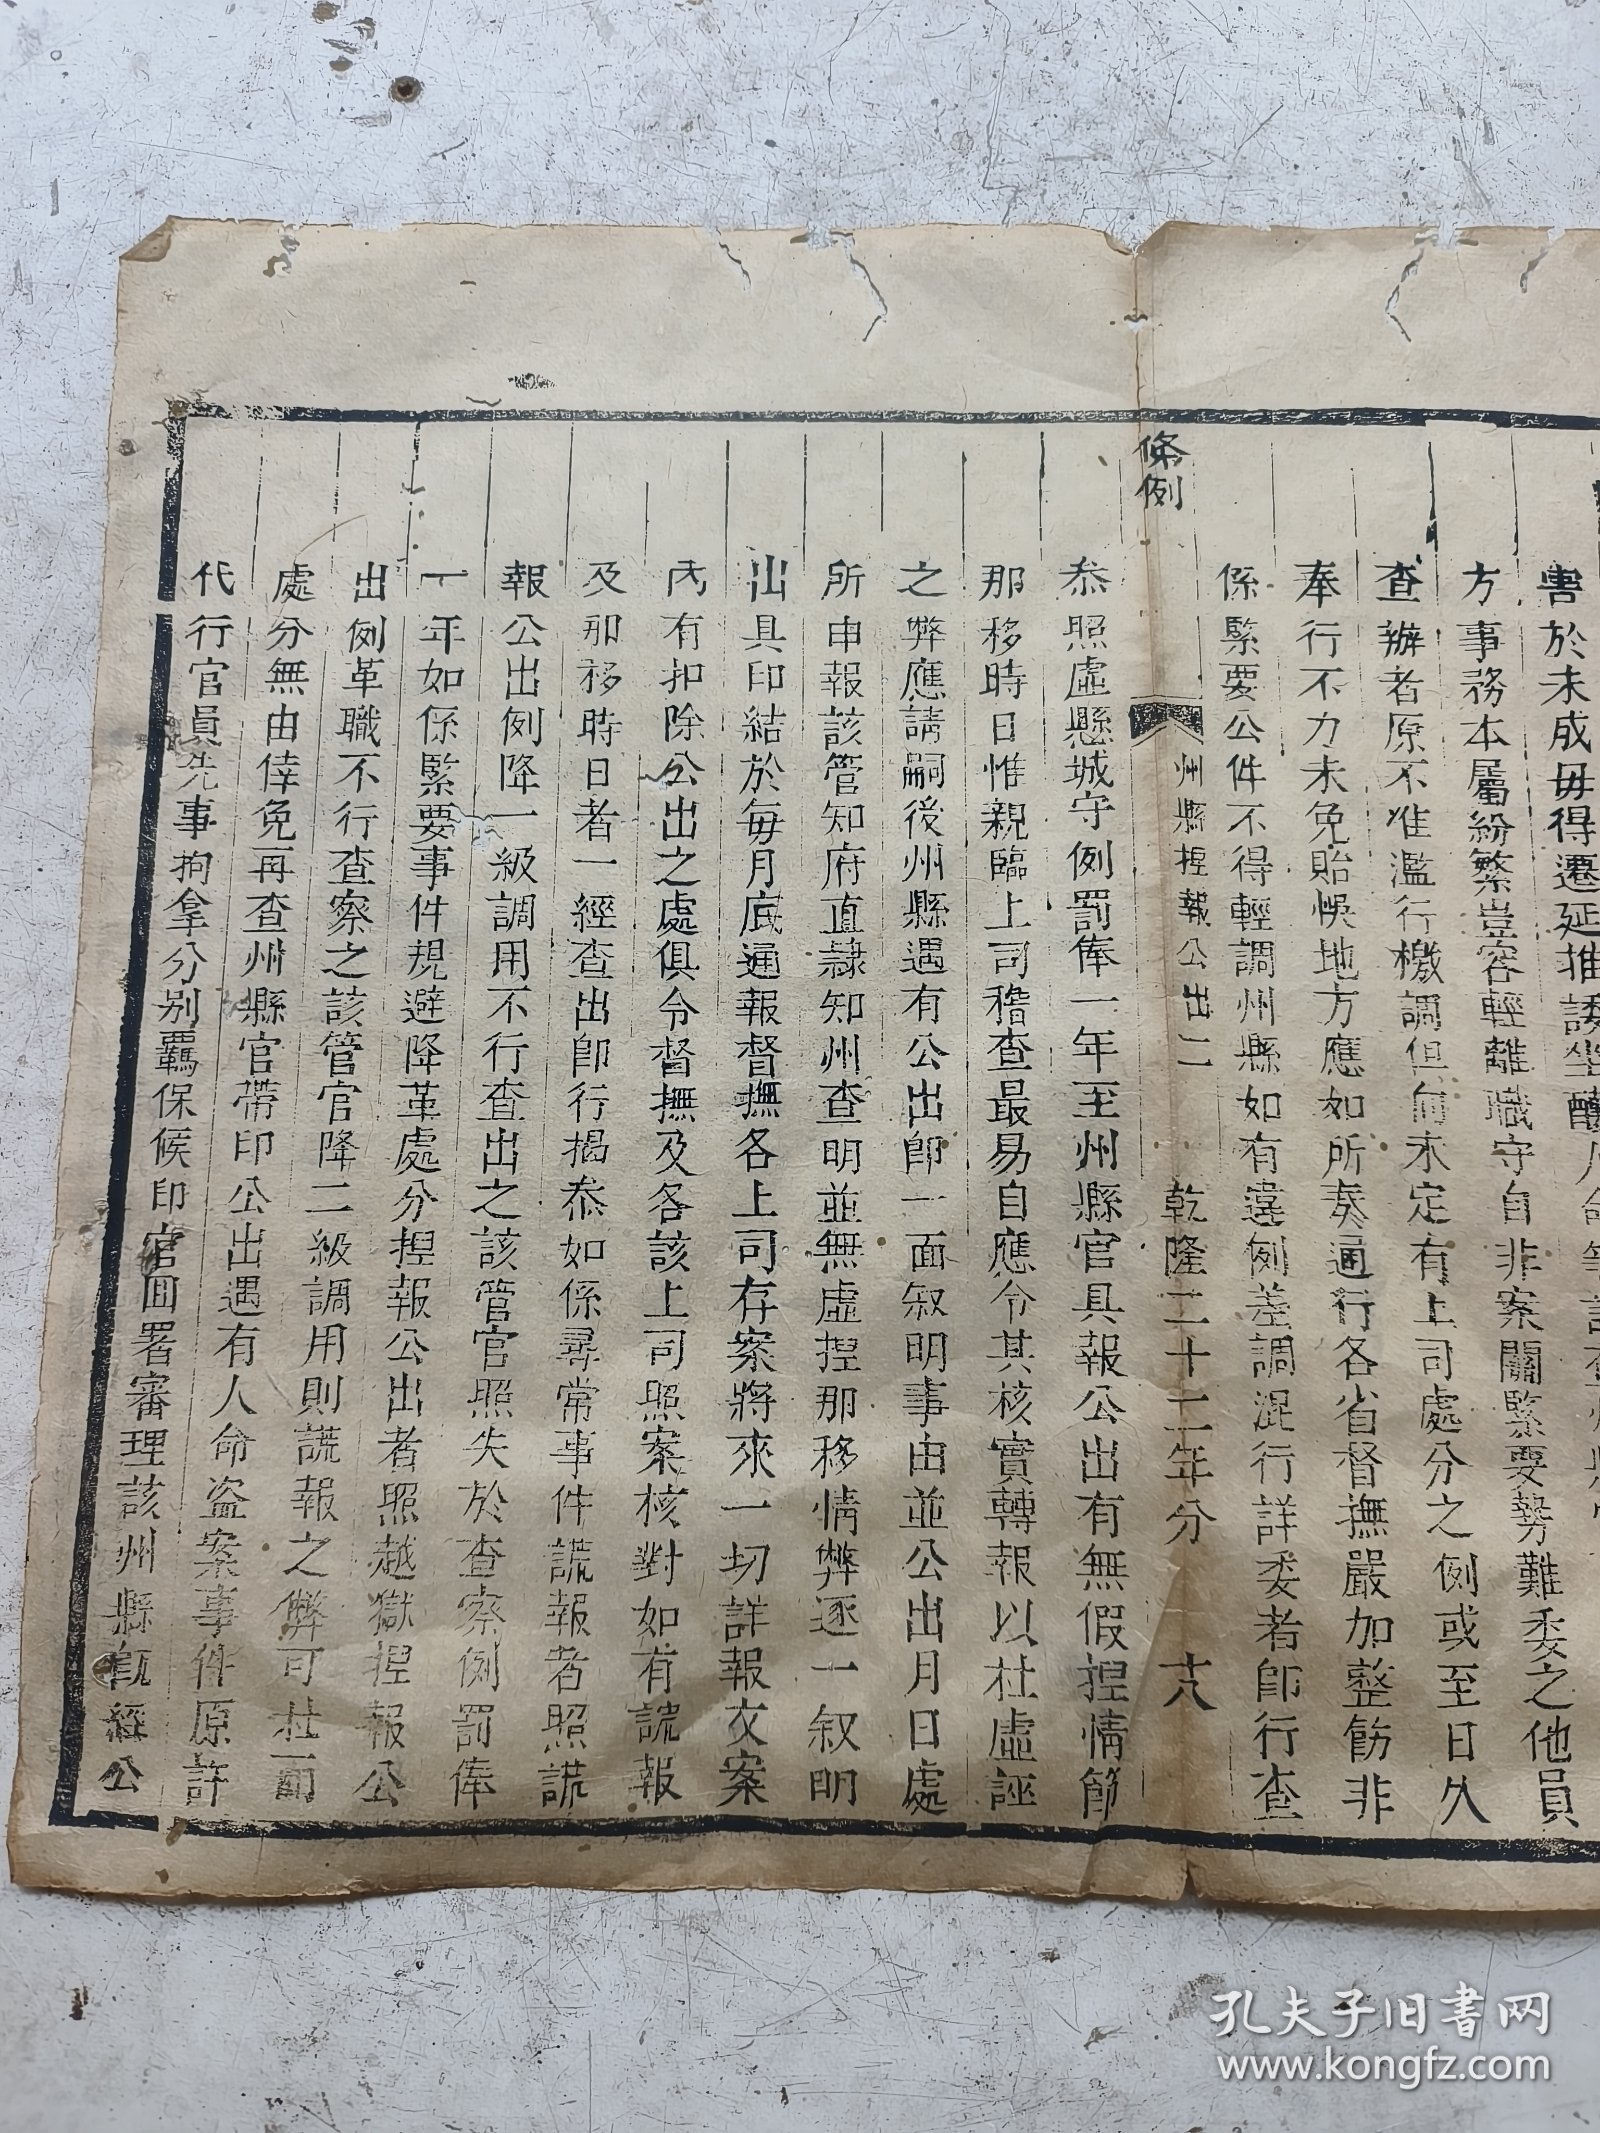 害於未成毋得遷延推諉坐釀
方事務本屬紛繁豈容輕離職守自非案關緊要勢難委之他員
查辦者原不准濫行檄調但向未定有上司處分之例或至日久
奉行不力未免貽悞地方應如所奏通行各省督撫嚴加整飭非
係緊要公件不得輕調州縣如有違例差調混行詳委者即行查
條例 州縣揑報公出二 乾隆二十二年分 十八
叅照虛懸城守例罰俸一年至州縣官具報公出有無假揑情節
那移時日惟親臨上司稽查最易自應令其核實轉報以杜虛誣
之弊應請嗣後州縣遇有公出即一面叙明事由並公出月日處
所申報該管知府直隷知州查明並無虛揑那移情弊逐一叙明
出具印結於每月底通報督撫各上司存案將來一切詳報文案
內有扣除公出之處俱令督撫及各該上司照案核對如有謊報
及那移時日者一經查出即行揭叅如係尋常事件謊報者照謊
報公出例降一級調用不行查出之該管官照失於查察例罰俸
一年如係緊要事件規避降革處分揑報公出者照越獄揑報公
出例革職不行查察之該管官降二級調用則謊報之弊可杜而
處分無由倖免再查州縣官帶印公出遇有人命盜案事件原許
代行官員先事拘拿分别羈保候印官囬署審理該州縣旣經公
孔夫子旧书网
www.kongfz.com